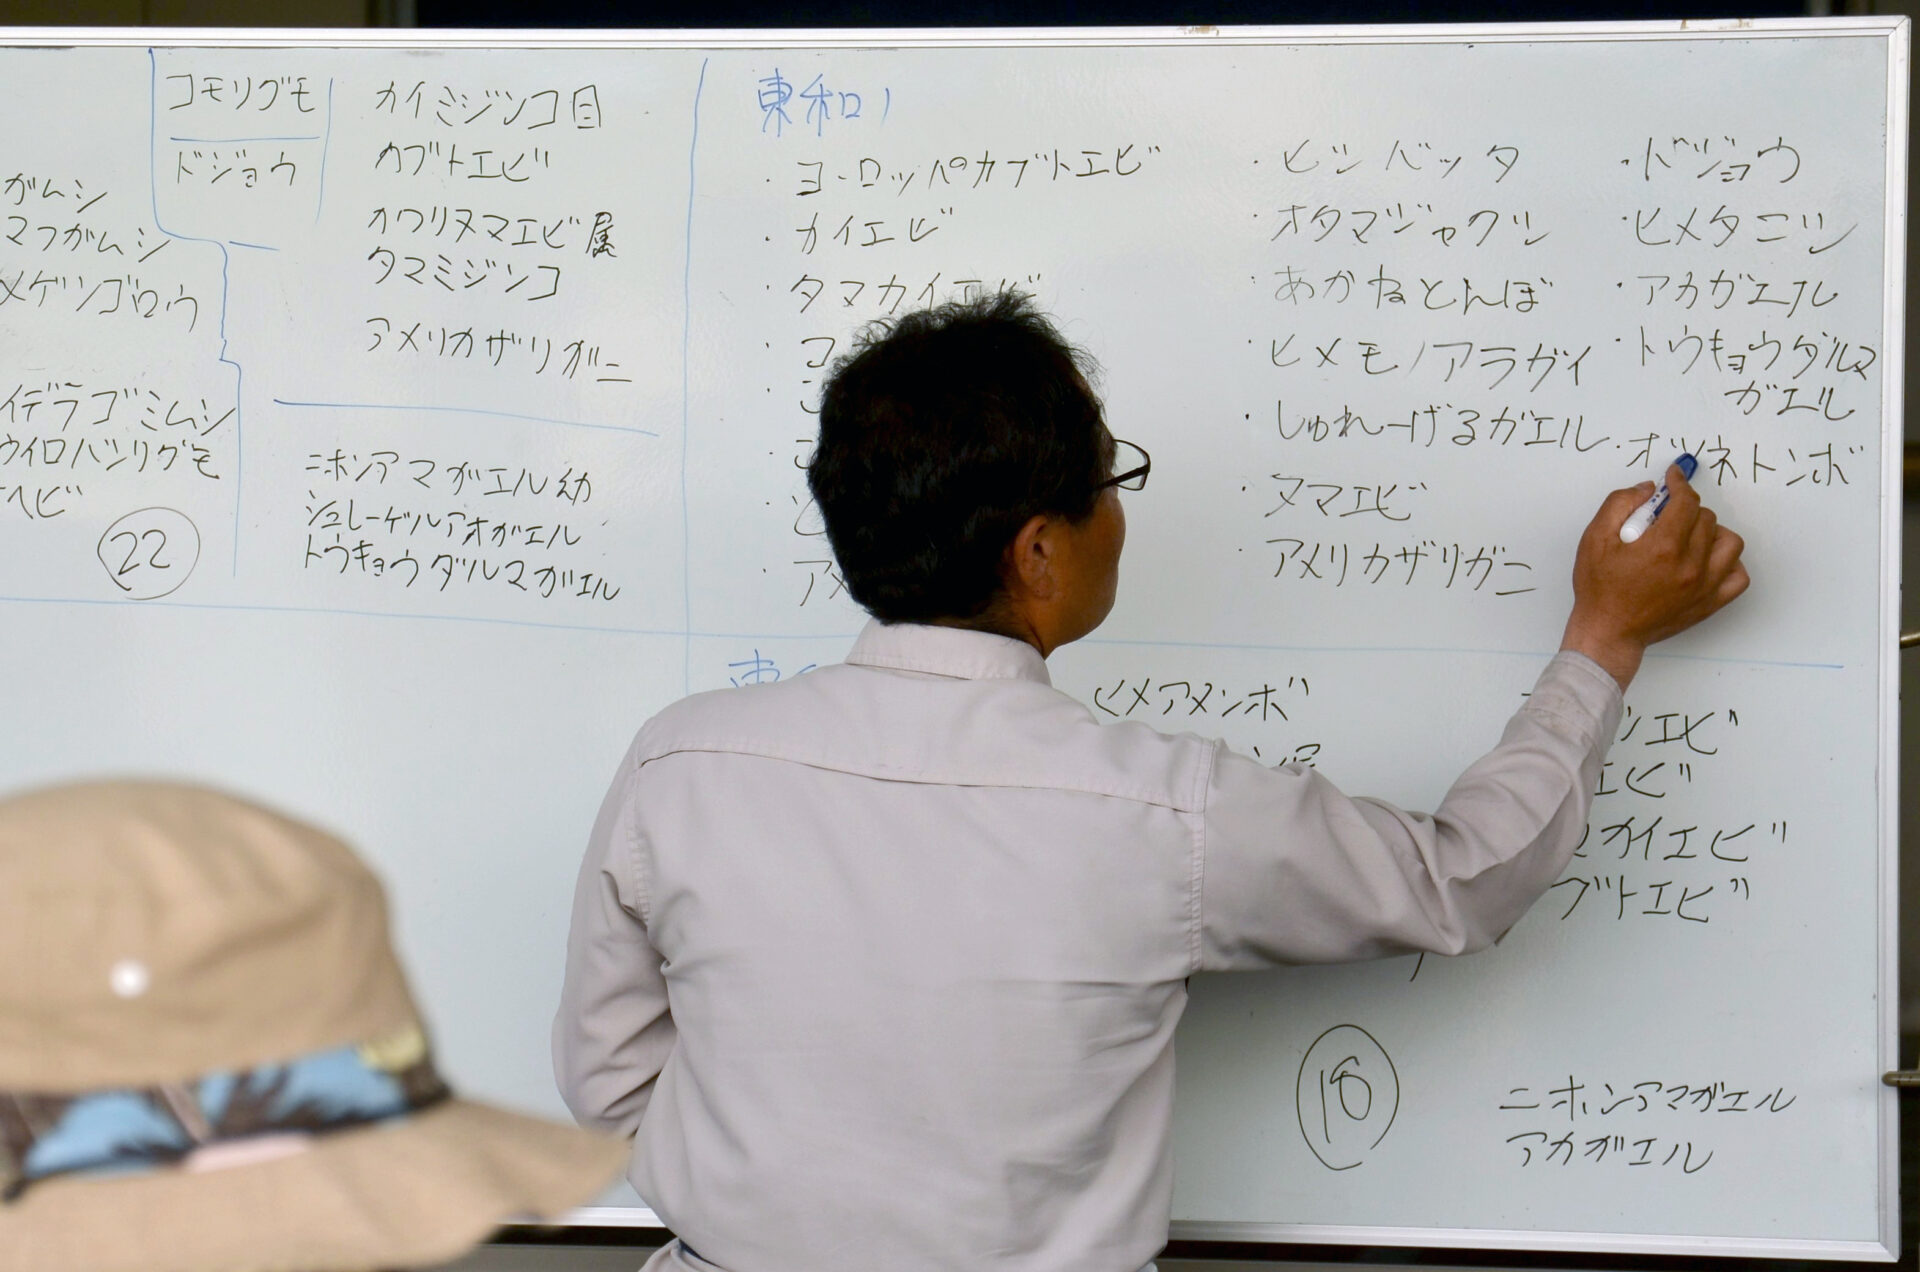 ガムシ
マフガムシ
メゲンゴロウ
イデラゴミムシ
ウイロバシリグモ
ヘビ
22
コモリグモ
ドジョウ
カイミジンコ目
カブトエビ
カワリヌマエビ属
タマミジンコ
アメリカザリガニ
ニホンアマガエル幼
シュレーゲルアオガエル
トウキョウダルマガエル
東和1
・ヨーロッパカブトエビ
・カイエビ
・タマカイエビ
・コ
・アメ
・ヒシバッタ
・オタマジャクシ
・あかねとんぼ
・ヒメモノアラガイ
・しゅれーげるガエル
・ヌマエビ
・アメリカザリガニ
・ドジョウ
・ヒメタニシ
・アカガエル
・トウキョウダルマ
ガエル
・オツネトンボ
東
ヒメアメンボ
エビ
エビ
マカイエビ
ブトエビ
18
ニホンアマガエル
アカガエル